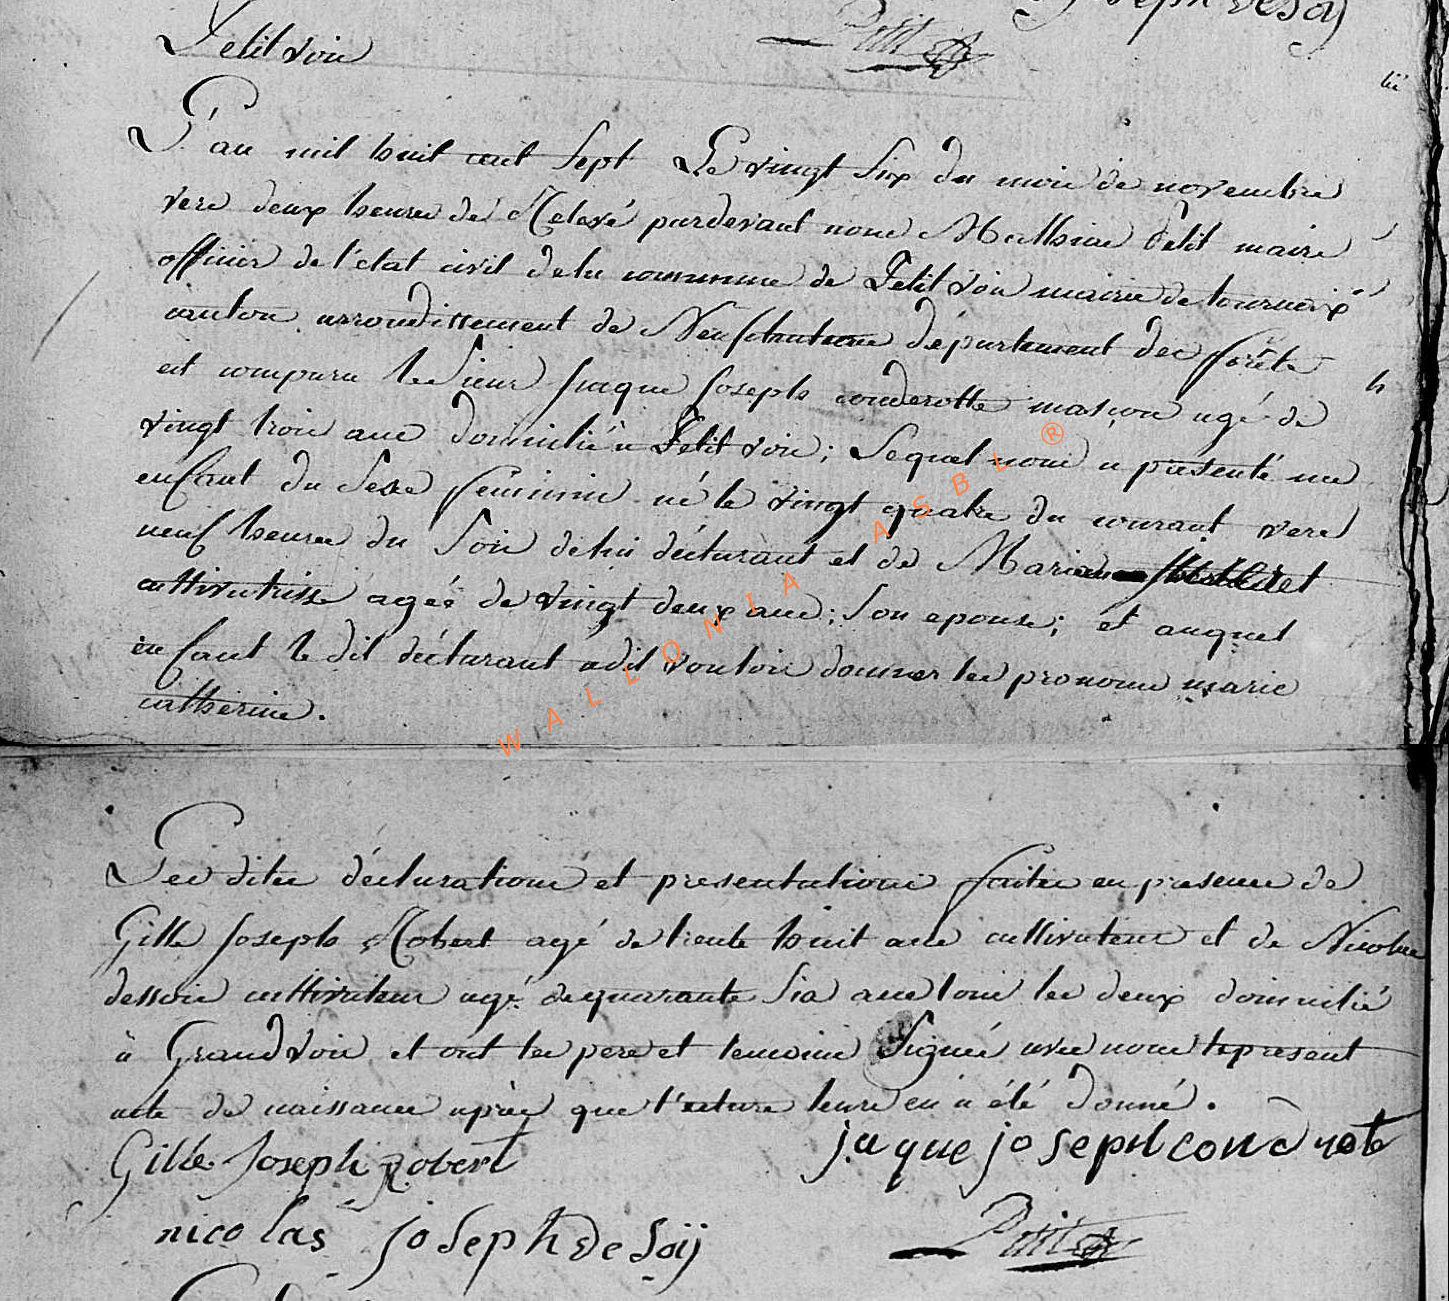 joseph de soij
Petit
Petitvoir
L'an mil huit cent sept Le vingt six du mois de novembre
vers deux heures de Relevé pardevant nous Mathias Petit maire
officier de l'etat civil dela commune de Petitvoir mairie de tournaix
canton arrondissement de Neufchateau département des forêts
est comparu le Sieur jaque joseph conderotte masçon agé de
vingt trois ans domicilié a Petitvoir; Lequel nous a présenté un
enfant du Sexe feminin né le vingt quatre du courant vers
neuf heures du Soir de lui déclarant et de Marie
cultivatrisse agée de vingt deux ans; Son epouse; et auquel
enfant le dit déclarant adit vouloir donner les pronoms marie
catherine.
WALLONIA ASBL ®
Les dites déclarations et presentations faites en presence de
Gille joseph Robert agé de trente huit ans cultivateur et de Nicolas
dessoie cultivateur agé de quarante Six ans tous les deux domicilié
à Grandvoir et ont les pere et temoins Signés avec nous le present
acte de naissance après que l'ecture leurs en a été donné.
Gille Joseph Robert
jaque joseph conderote
nicolas joseph de soij
Petit